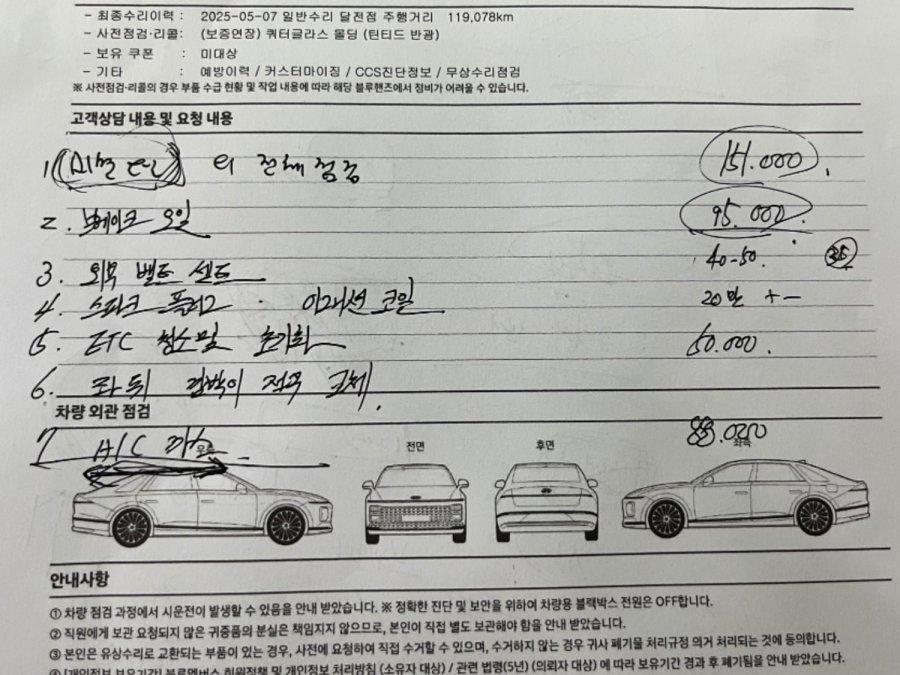 - 최종수리이력 : 2025-05-07 일반수리 달전점 주행거리 119,078km
- 사전점검·리콜: (보증연장) 쿼터글라스 몰딩 (틴티드 반광)
- 보유 쿠폰 : 미대상
- 기타 : 예방이력 / 커스터마이징 / CCS진단정보 / 무상수리점검
※ 사전점검·리콜의 경우 부품 수급 현황 및 작업 내용에 따라 해당 블루핸즈에서 정비가 어려울 수 있습니다.
고객상담 내용 및 요청 내용
1. 외 전체점검 151.000
2. 브레이크 오일 95.000
3. 외부 벨트 셋트 40-50. 35
4. 스파크 플러그 · 이그네션 코일 20만 +-
5. ETC 청소및 초기화 50.000.
6. 좌뒤 교체.
차량 외관 점검
7 A/C 가스 88.000
우측 전면 후면 좌측
안내사항
① 차량 점검 과정에서 시운전이 발생할 수 있음을 안내 받았습니다. ※ 정확한 진단 및 보안을 위하여 차량용 블랙박스 전원은 OFF합니다.
② 직원에게 보관 요청되지 않은 귀중품의 분실은 책임지지 않으므로, 본인이 직접 별도 보관해야 함을 안내 받았습니다.
③ 본인은 유상수리로 교환되는 부품이 있는 경우, 사전에 요청하여 직접 수거할 수 있으며, 수거하지 않는 경우 귀사 폐기물 처리규정 의거 처리되는 것에 동의합니다.
④ [개인정보 보유기간] 블루멤버스 회원정책 및 개인정보 처리방침 (소유자 대상) / 관련 법령(5년) (의뢰자 대상) 에 따라 보유기간 경과 후 폐기됨을 안내 받았습니다.